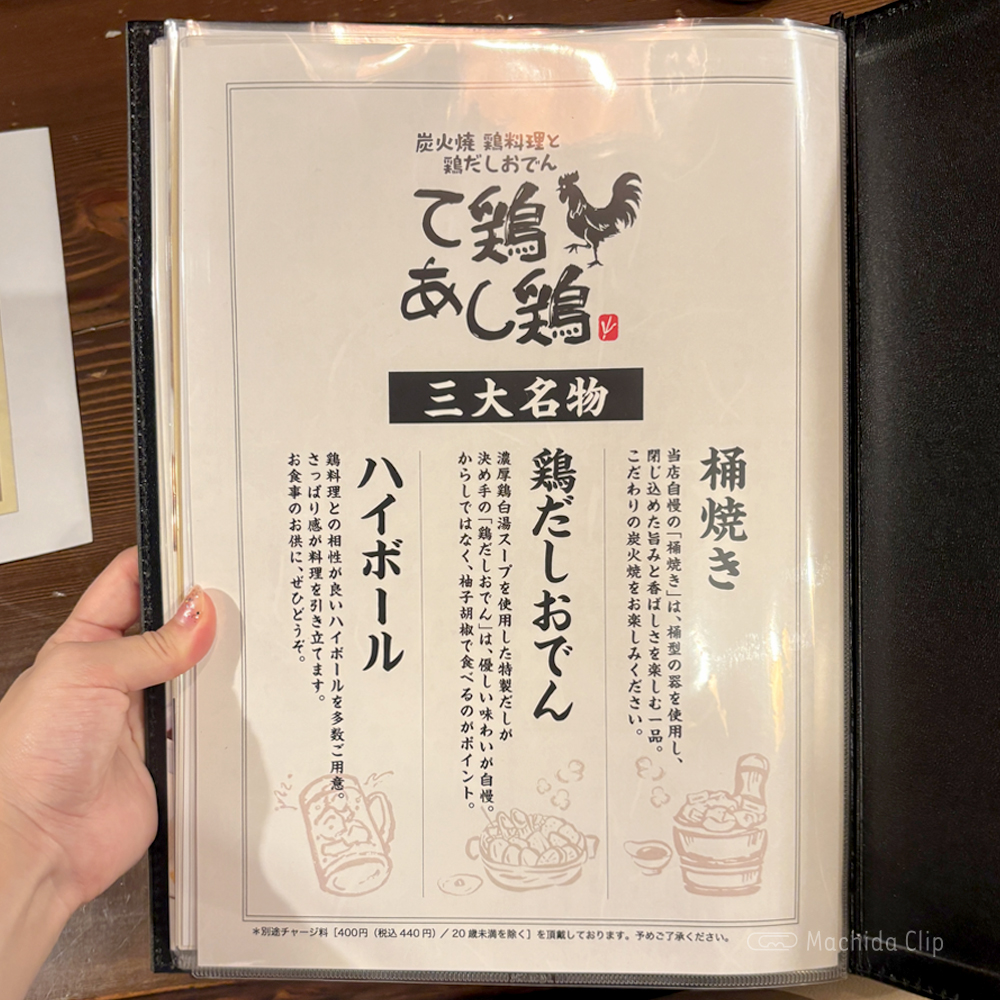 炭火焼 鶏料理と
鶏だしおでん
て鶏
あし鶏
三大名物
桶焼き
当店自慢の「桶焼き」は、桶型の器を使用し、
閉じ込めた旨みと香ばしさを楽しむ一品。
こだわりの炭火焼をお楽しみください。
鶏だしおでん
濃厚鶏白湯スープを使用した特製だしが
決め手の「鶏だしおでん」は、優しい味わいが自慢。
からしではなく、柚子胡椒で食べるのがポイント。
ハイボール
鶏料理との相性が良いハイボールを多数ご用意。
さっぱり感が料理を引き立てます。
お食事のお供に、ぜひどうぞ。
*別途チャージ料［400円（税込440円）/ 20歳未満を除く］を頂戴しております。予めご了承ください。
Machida Clip